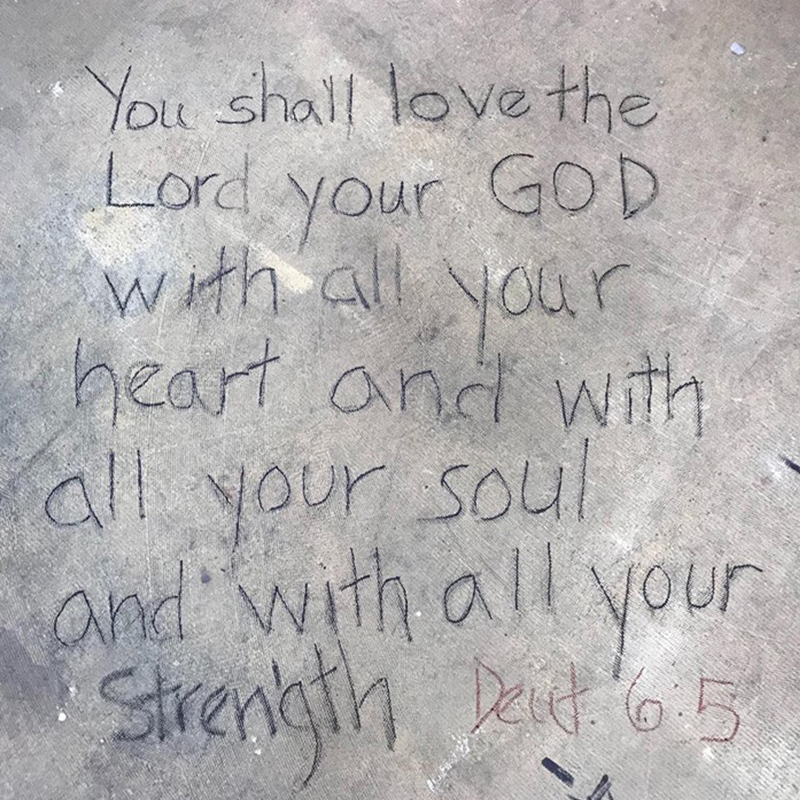 You shall love the
Lord your GOD
with all your
heart and with
all your soul
and with all your
Strength Deut. 6:5